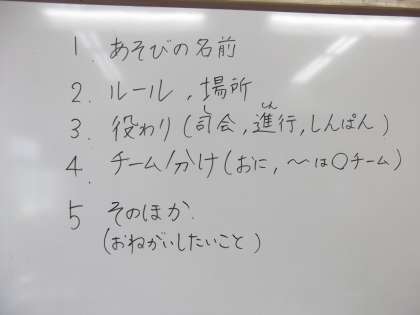 1. あそびの名前
2. ルール, 場所
3. 役わり(司会, 進行, しんぱん)
4. チーム分け(おに, 〜は〇チーム)
5 そのほか.
(おねがいしたいこと)